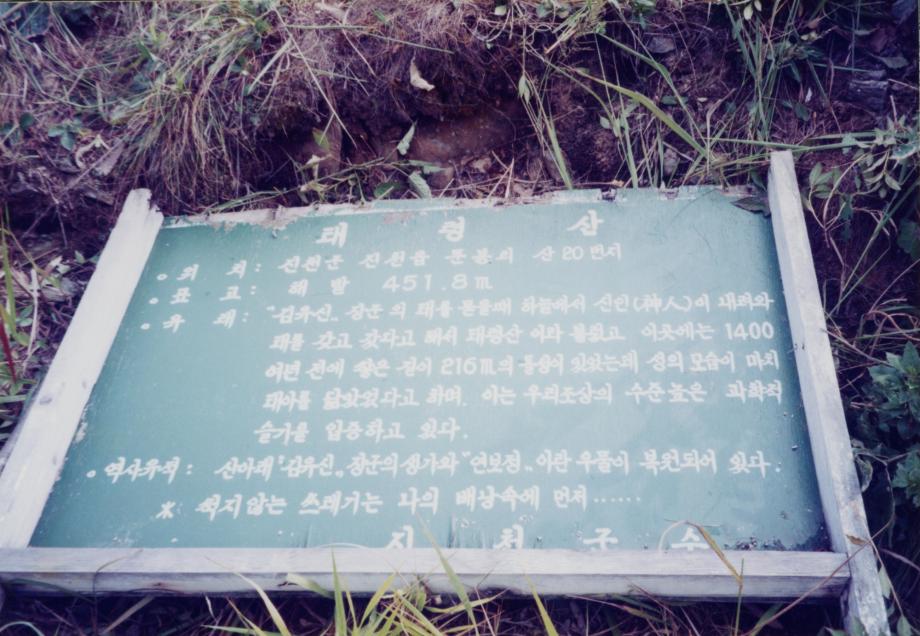 태 령 산
◦ 위 치 : 진천군 진천읍 문봉리 산 20 번지
◦ 표 고 : 해 발 451.8m
◦ 유 래 : "김유신„ 장군의 태를 묻을때 하늘에서 신인(神人)이 내려와
태를 갖고 갔다고 해서 태령산 이라 불렸고. 이곳에는 1400
여년 전에 쌓은 길이 216m의 돌성이 있었는데 성의 모습이 마치
태아를 닮았었다고 하며. 이는 우리조상의 수준높은 과학적
슬기를 입증하고 있다.
◦ 역사유적 : 산아래 "김유신„ 장군의생가와 "연보정„ 이란 우물이 복원되어 있다.
※ 썩지않는 쓰레기는 나의 배낭속에 먼저······
진 천 군 수